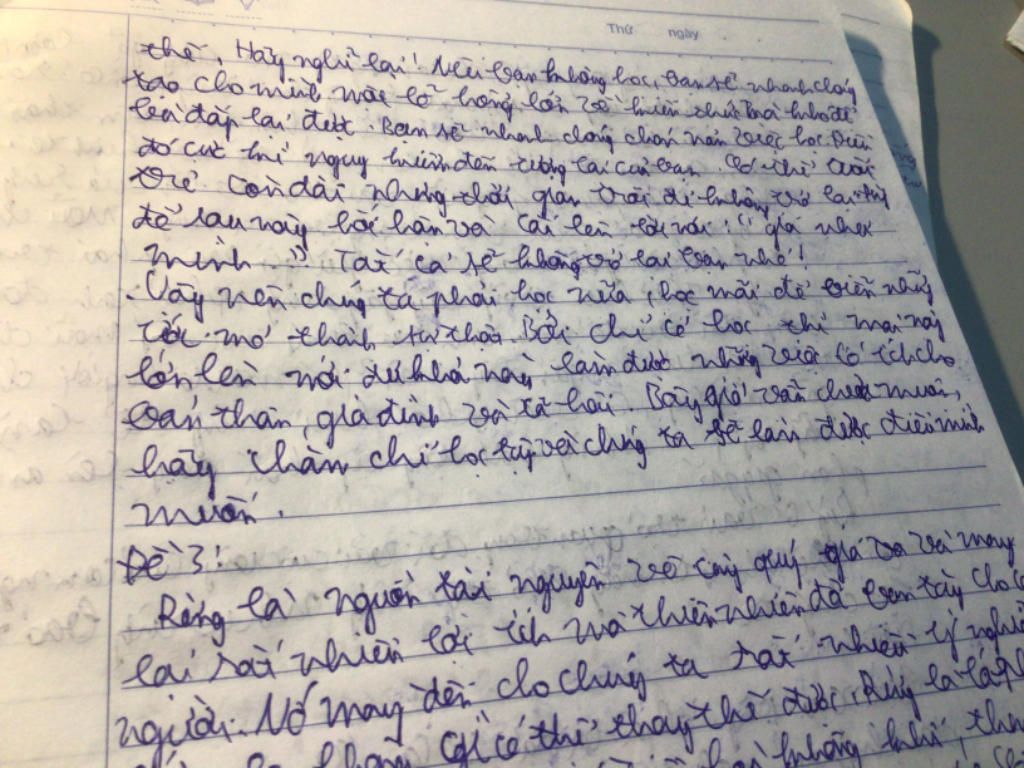 Thứ ngày
thế. Hãy nghĩ lại! Nếu bạn không học, bạn sẽ nhanh chóng
tạo cho mình một lỗ hổng lớn về kiến thức mà khó để
lấp đắp lại được. Bạn sẽ nhanh chóng chán nản việc học. Điều
đó cực kì nguy hiểm đến tương lai của bạn. Có thể tuổi
trẻ còn dài nhưng thời gian trôi đi không trở lại
để sau này hối hận và cái lên lời nói: "giá như
mình" Tất cả sẽ không trở lại bạn nhé!
Vậy nên chúng ta phải học nữa, học mãi để biến những
ước mơ thành sự thật. Bởi chỉ có học thì mai này
lớn lên mới dư khả năng làm được những việc có ích cho
bản thân, gia đình và xã hội. Bây giờ vẫn chưa muộn,
hãy chăm chỉ học tập và chúng ta sẽ làm được điều mình
muốn.
Đề 3:
Rừng là nguồn tài nguyên vô cùng quý giá và mang
lại rất nhiều lợi ích mà thiên nhiên đã ban tặng cho
người. Nó mang đến cho chúng ta rất nhiều ý nghĩ
không gì có thể thay thế được. Rừng là lá
không khí,